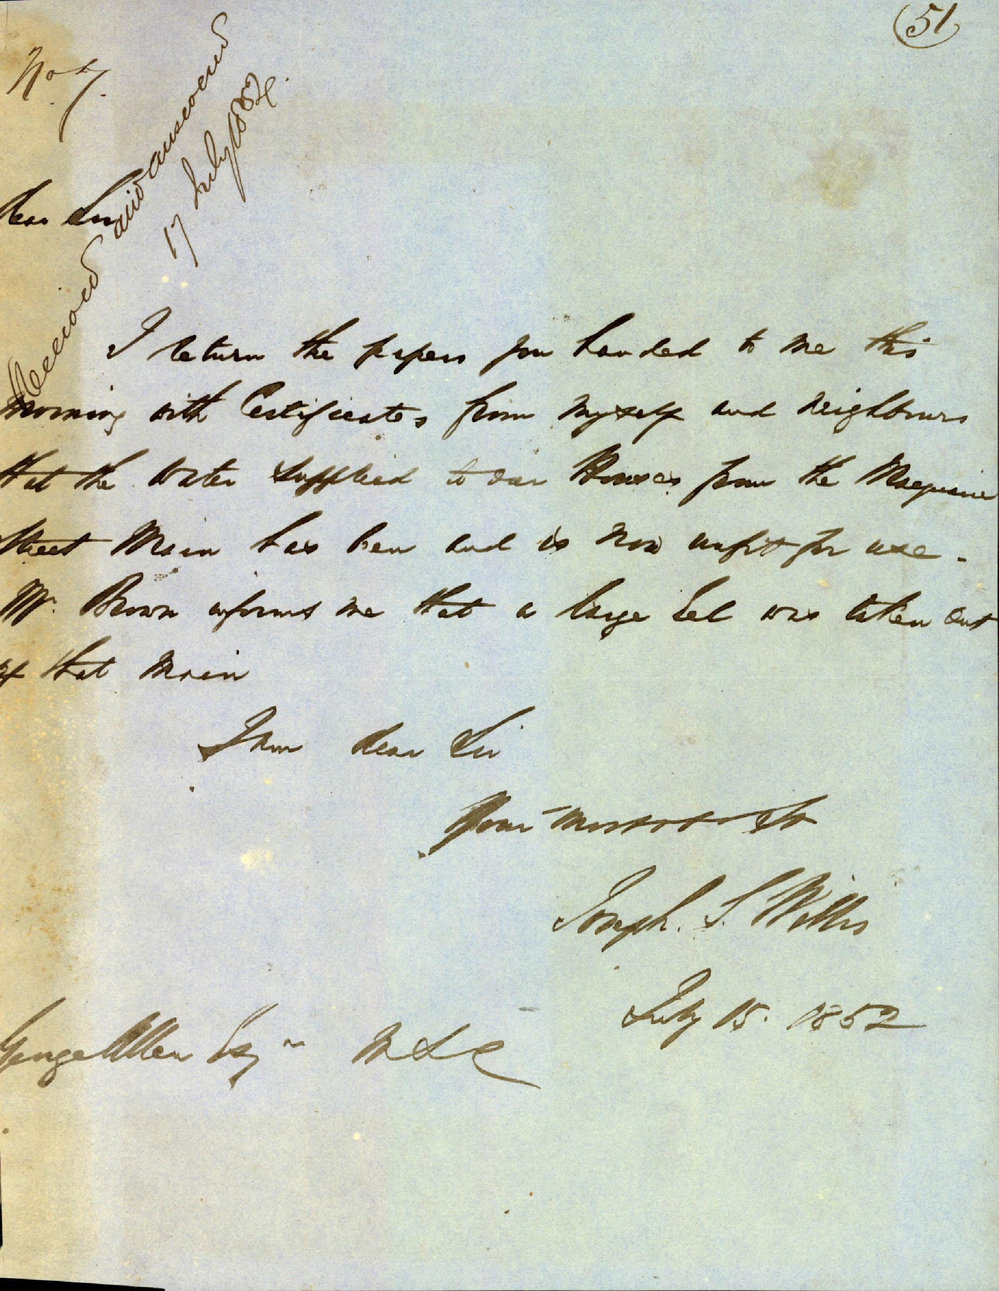 51
No. 7.
Received and answered
17 July 1852.
Dear Sir
I return the papers you handed to me this
morning with Certificates from myself and neighbours
that the Water supplied to our Houses from the Macquarie
Street Main has been and is now unfit for use.
Mr. Brown informs me that a large Eel was taken out
of that Main
I am dear Sir
Your most obt St
Joseph. S. Willis
July 15. 1852
George Allen Esqre M L C